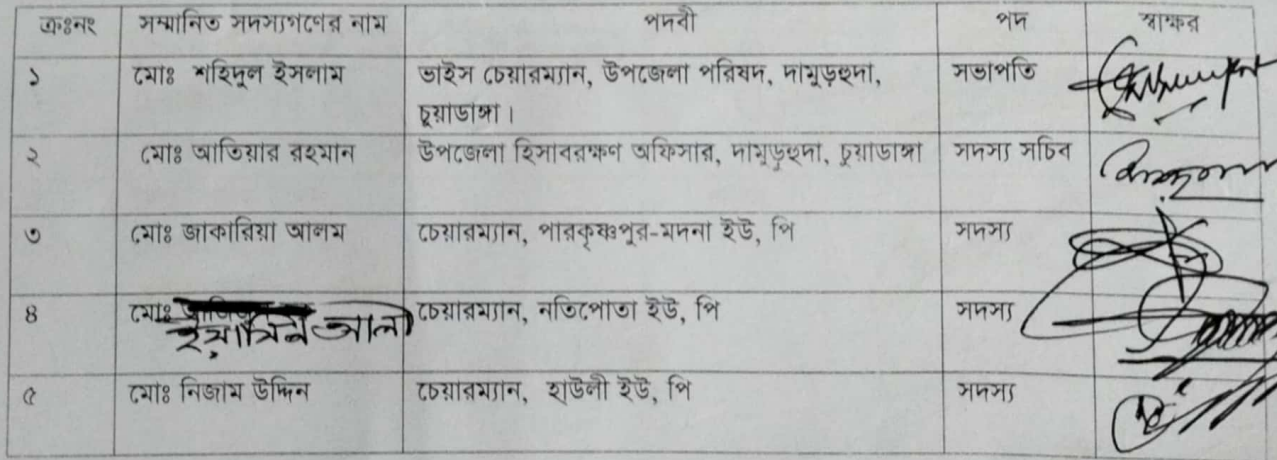 ক্রঃনং সম্মানিত সদস্যগণের নাম পদবী পদ স্বাক্ষর
১ মোঃ শহিদুল ইসলাম ভাইস চেয়ারম্যান, উপজেলা পরিষদ, দামুড়হুদা, সভাপতি
চুয়াডাঙ্গা।
২ মোঃ আতিয়ার রহমান উপজেলা হিসাবরক্ষণ অফিসার, দামুড়হুদা, চুয়াডাঙ্গা সদস্য সচিব
৩ মোঃ জাকারিয়া আলম চেয়ারম্যান, পারকৃষ্ণপুর-মদনা ইউ, পি সদস্য
৪ মোঃ চেয়ারম্যান, নতিপোতা ইউ, পি সদস্য
ইয়ামিন আলী
৫ মোঃ নিজাম উদ্দিন চেয়ারম্যান, হাউলী ইউ, পি সদস্য